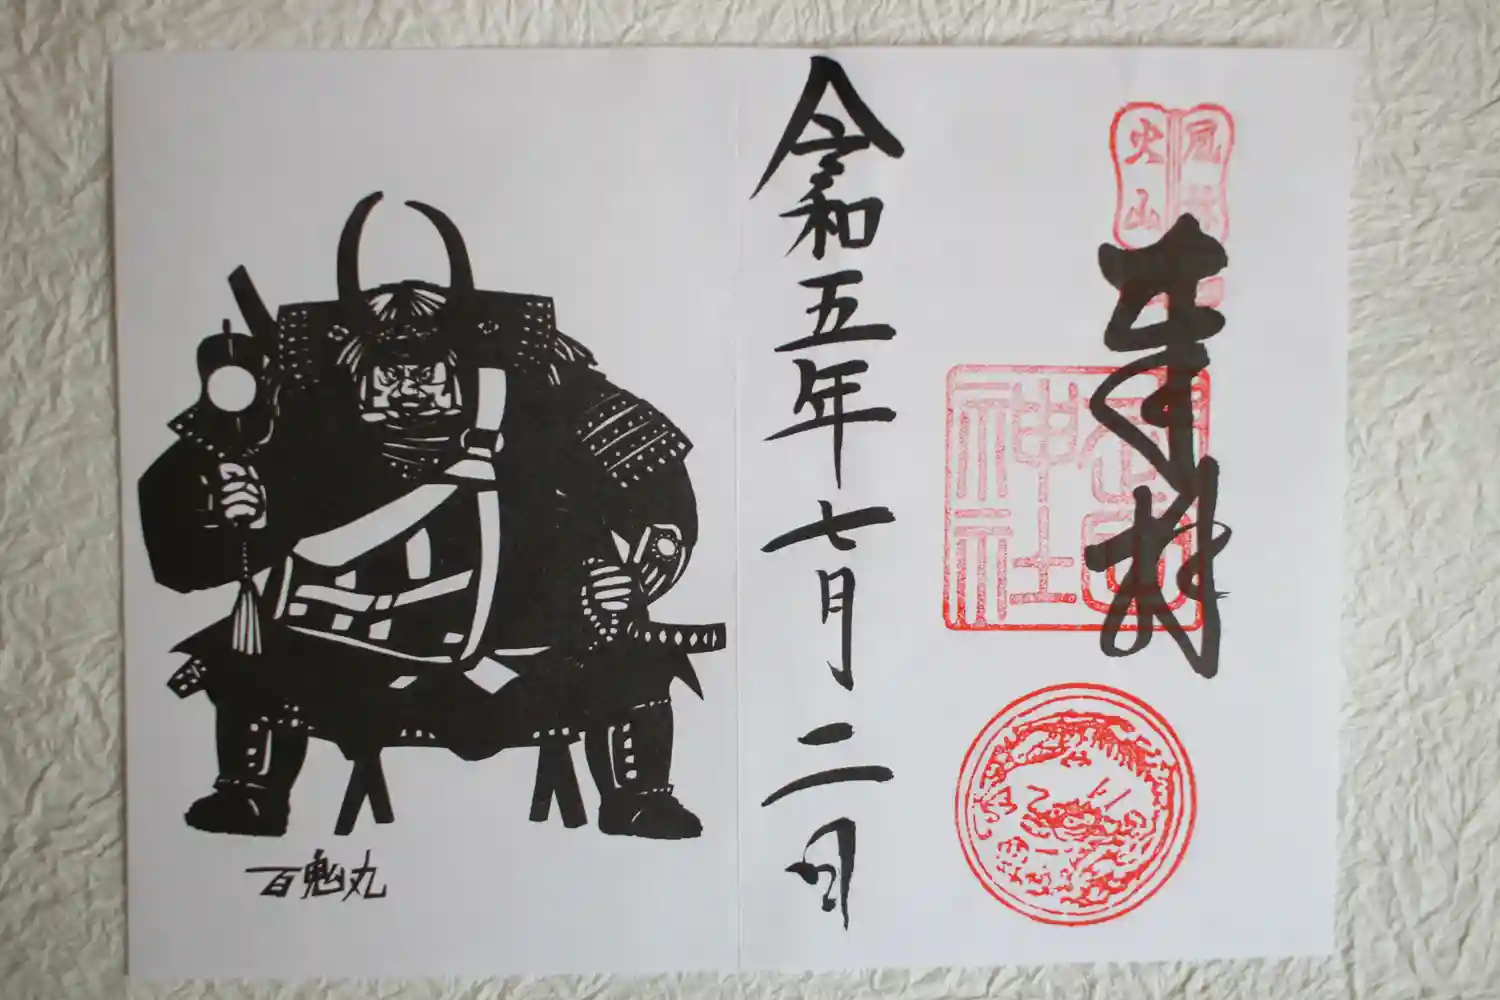 風林
火山
奉拝
武田
神社
令和五年七月二日
百鬼丸